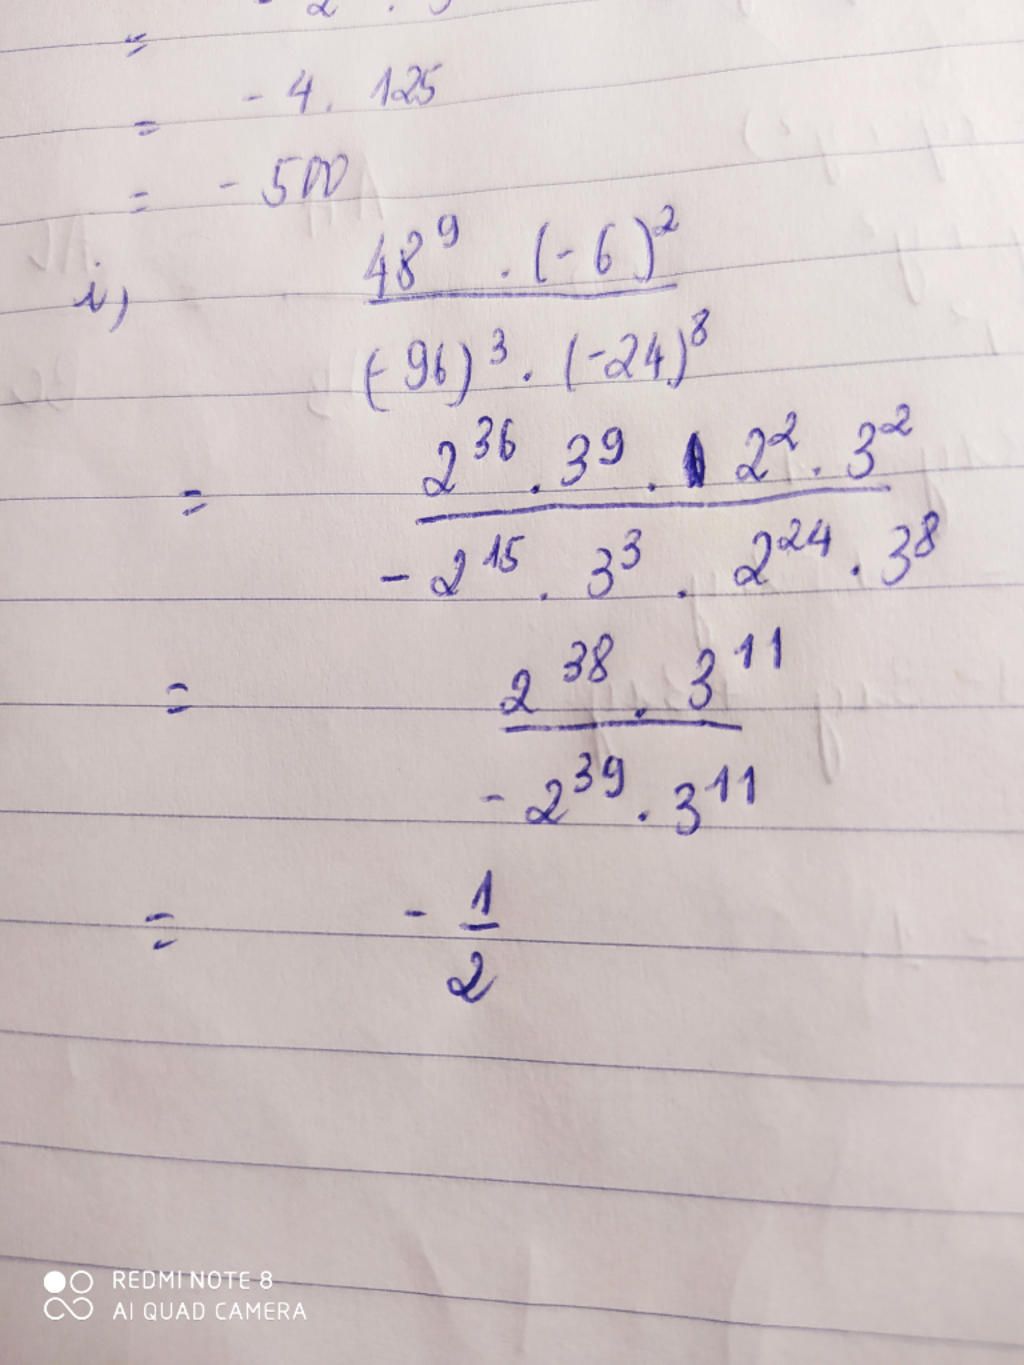 =
- 4 . 125
= - 500
i, 48^9 . (-6)^2
(-96)^3 . (-24)^8
= 2^36 . 3^9 . 2^2 . 3^2
- 2^15 . 3^3 . 2^24 . 3^8
= 2^38 . 3^11
- 2^39 . 3^11
= - 1
2
REDMI NOTE 8
AI QUAD CAMERA